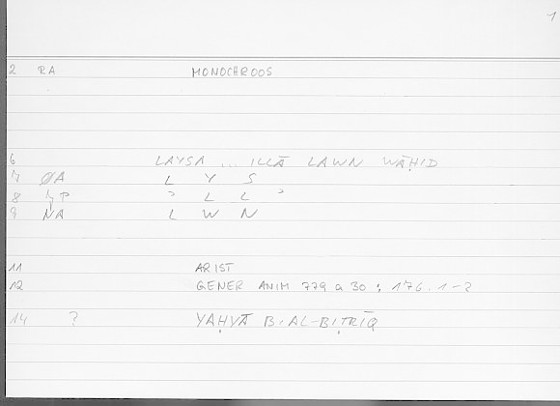 1
2 RA MONOCHROOS
6 LAYSA ... ILLĀ LAWN WĀḤID
7 ØA L Y S
8 ɔ L L ɔ
9 NA L W N
11 ARIST
12 GENER ANIM 779 a 30 ; 176. 1-2
14 ? YAḤYĀ B. AL-BIṬRĪQ